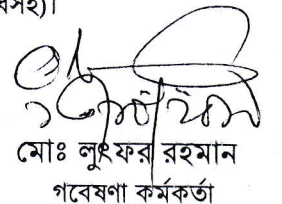 মোঃ লুৎফর রহমান
গবেষণা কর্মকর্তা